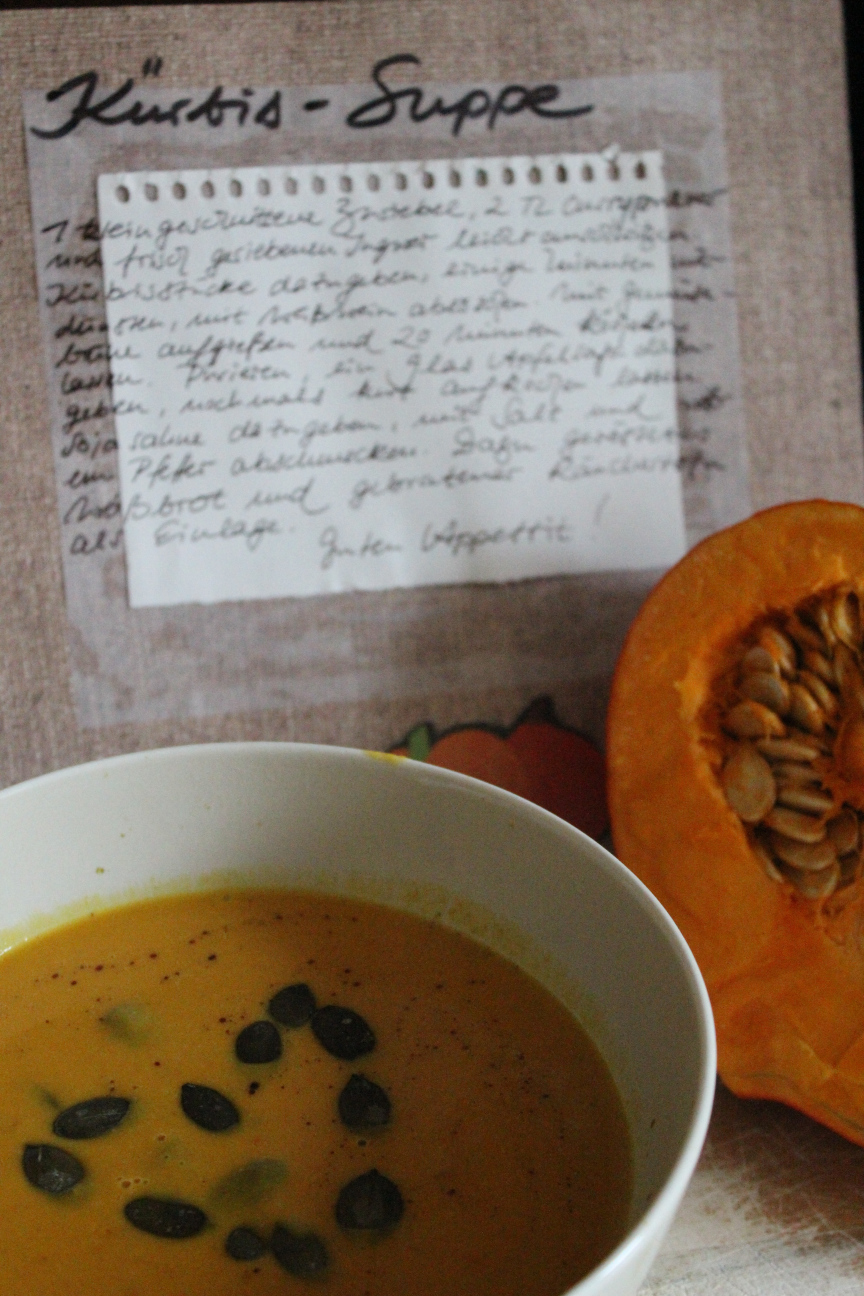 Kürbis - Suppe
1 kleingeschnittene Zwiebel, 2 TL Currypulver
und frisch geriebenen Ingwer leicht
Kürbisstücke dazugeben, einige Minuten
dünsten, mit Weißwein ablöschen. Mit Gemüse-
brühe aufgießen und 20 Minuten köcheln
lassen. Pürieren, ein Glas Apfelsaft dazu-
geben, nochmals kurz aufkochen lassen
Sojasahne dazugeben, mit Salz und
em Pfeffer abschmecken. Dazu geröstetes
Weißbrot und gebratener Räuchertofu
als Einlage.
Guten Appettit!